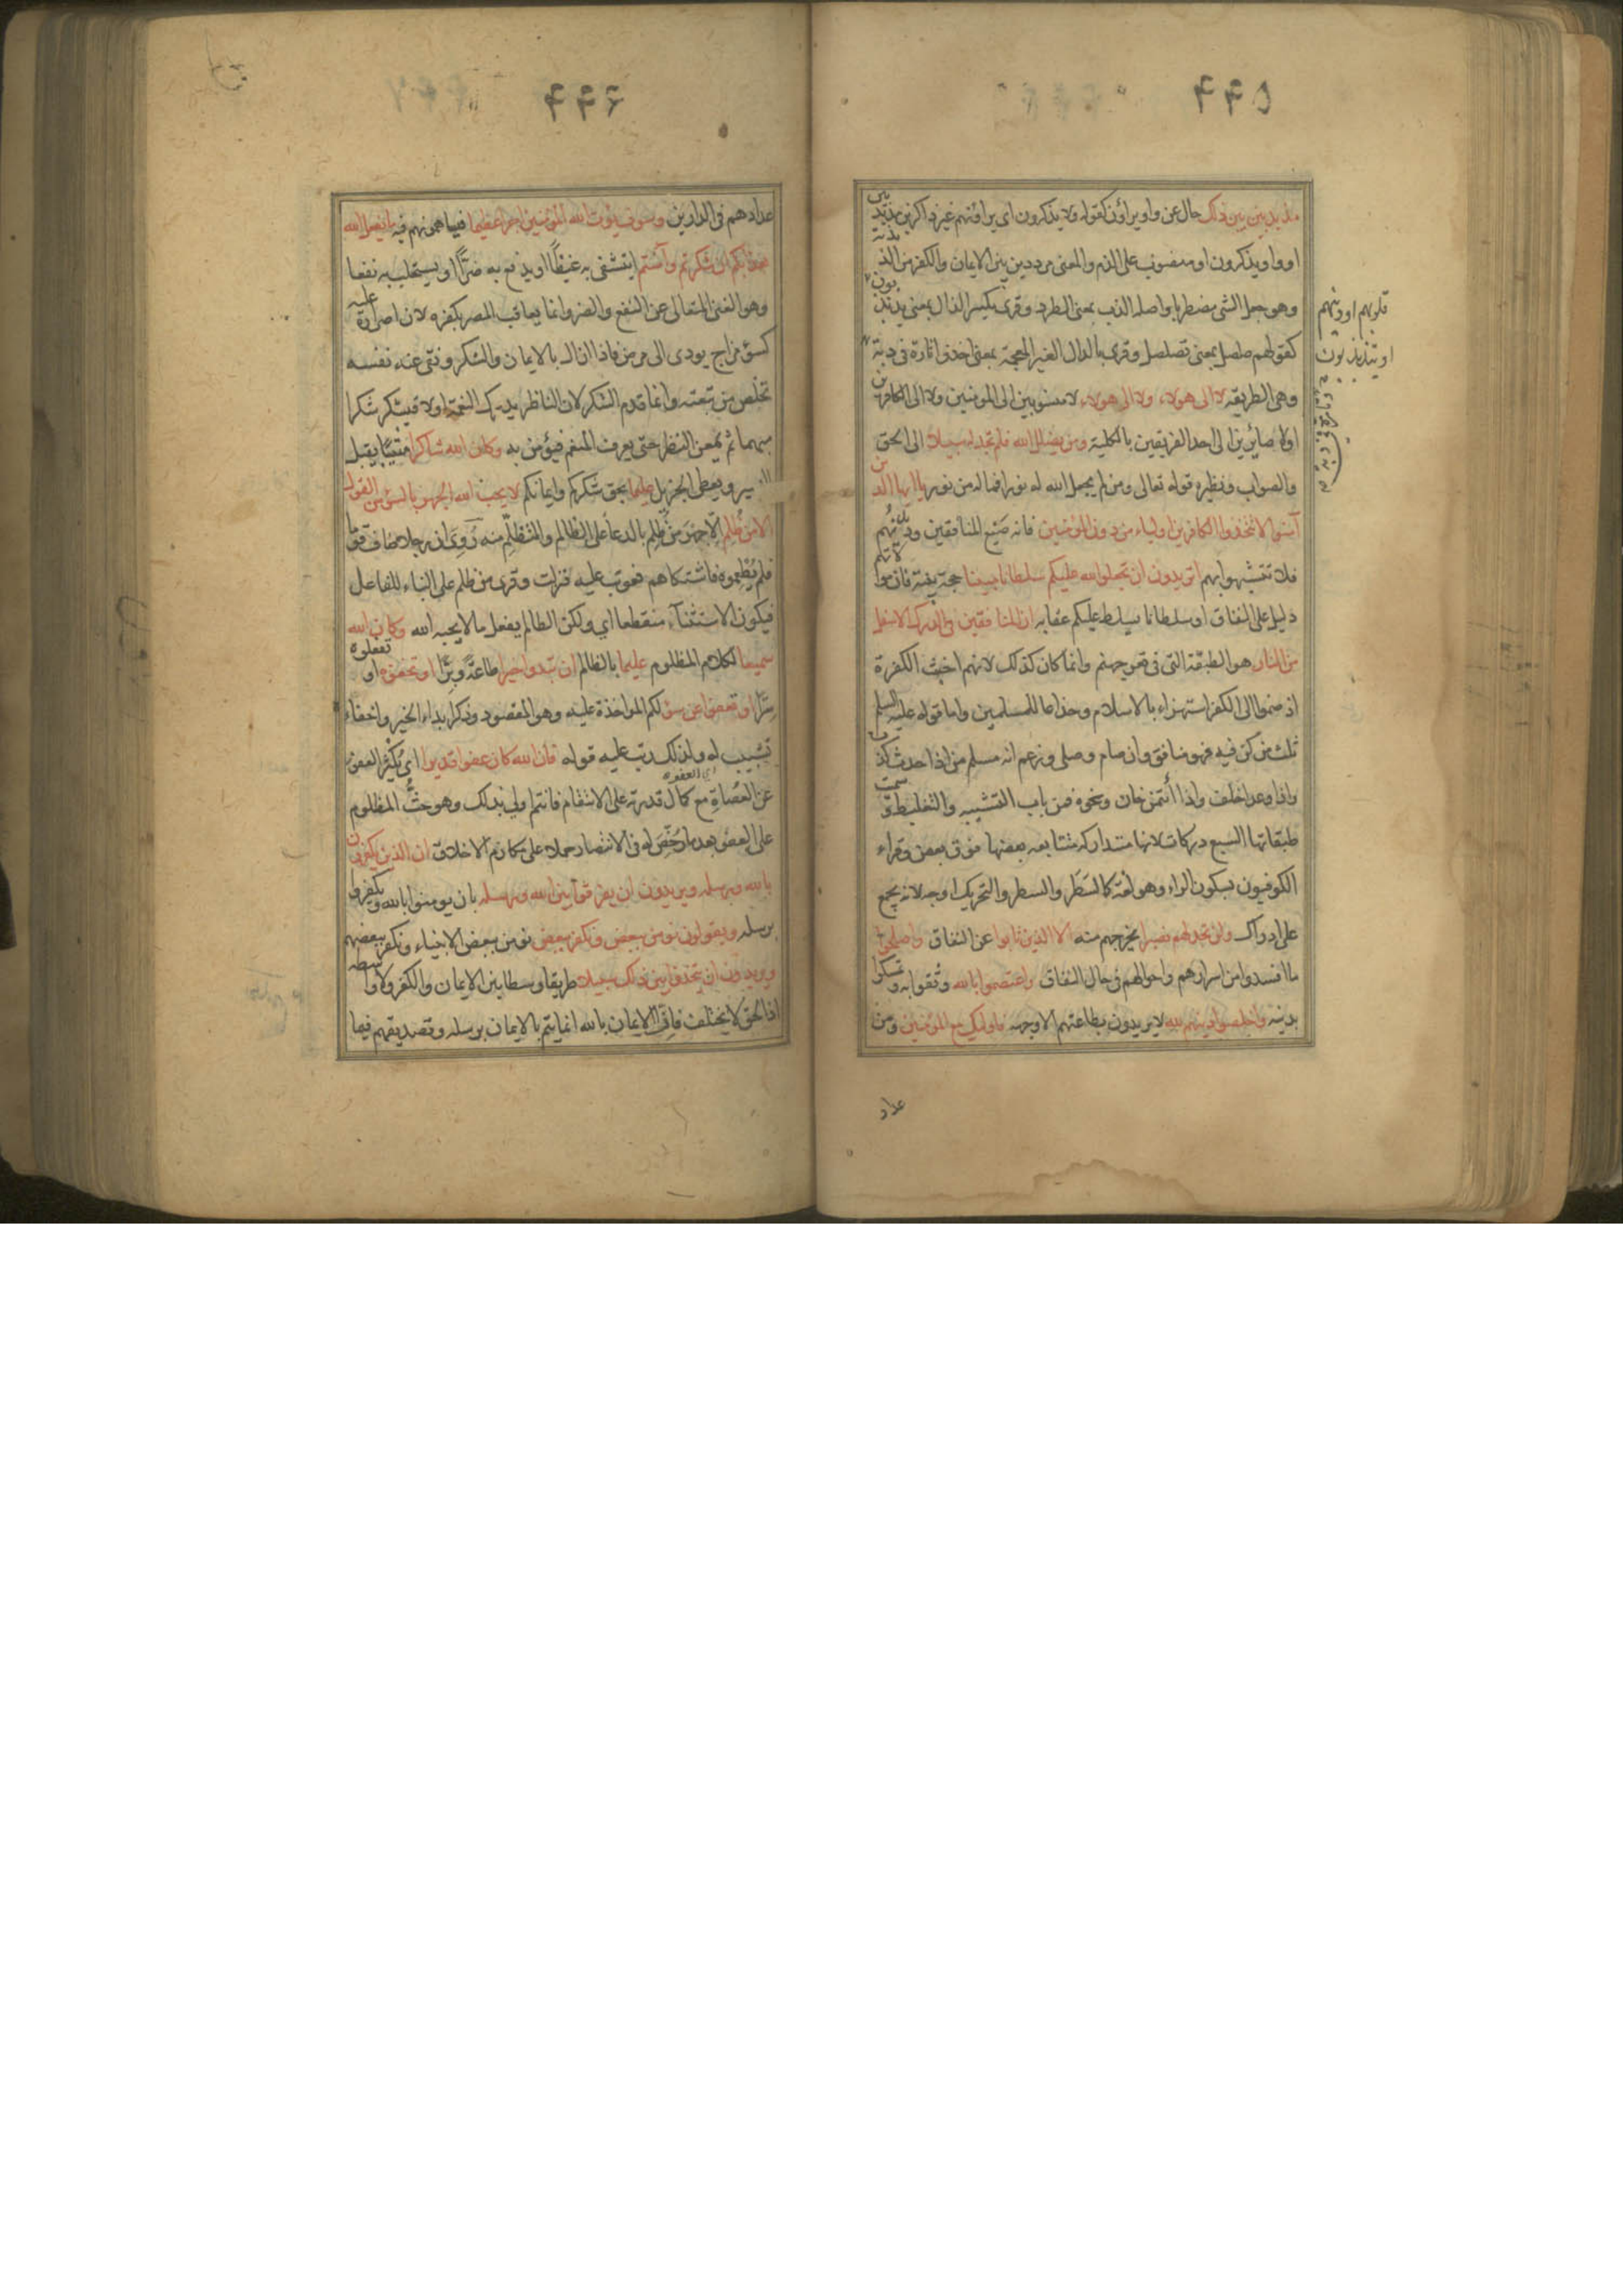 ۴۴۵
مذبذبين بين ذلك حال عن واو يراؤن كقوله ولا يذكرون اى يراؤنهم غير ذاكرين مذبذبين
او واو يذكرون او منصوب على الذم والمعنى مرددين بين الايمان والكفر من الذبذبة
وهو جعل الشئ مضطربا واصله الذب بمعنى الطرد وقرئ بكسر الذال بمعنى يذبذبون
قلوبهم او دينهم
او يتذبذبون
كقولهم صلصل بمعنى تصلصل وقرئ بالدال الغير المعجمة بمعنى اخذوا تارة فى دبة
وتارة فى دبة
وهى الطريقة لا الى هولاء ولا الى هولاء لا منسوبين الى المومنين ولا الى الكافرين
اولا صائرين الى احد الفريقين بالكلية ومن يضلل الله فلن تجد له سبيلا الى الحق
والصواب ونظيره قوله تعالى ومن لم يجعل الله له نورا فماله من نور يا ايها الذين
آمنوا لا تتخذوا الكافرين اولياء من دون المؤمنين فانه صنيع المنافقين ودينهم
فلا تتشبهوا بهم اتريدون ان تجعلوا لله عليكم سلطانا مبينا حجة بينة فان موالاتهم
دليل على النفاق او سلطانا يسلط عليكم عقابه ان المنافقين فى الدرك الاسفل
من النار هو الطبقة التى فى قعر جهنم وانما كان كذلك لانهم اخبث الكفرة
اذ ضموا الى الكفر استهزاء بالاسلام وخداعا للمسلمين واما قوله عليه السلم
ثلث من كن فيه فهو منافق وان صام وصلى وزعم انه مسلم من اذا حدث كذب
واذا وعد اخلف واذا أئتمن خان ونحوه فمن باب التشبيه والتغليظ وسميت
طبقاتها السبع دركات لانها متداركه متتابعه بعضها فوق بعض وقراء
الكوفيون بسكون الراء وهو لغة كالسَّطَر والسطر والتحريك اوجه لانه يجمع
على ادراك ولن تجد لهم نصيرا يخرجهم منه الا الذين تابوا عن النفاق واصلحوا
ما افسدوا من اسرارهم واحوالهم فى حال النفاق واعتصموا بالله وثقوا به وتمسكوا
بدينه واخلصوا دينهم لله لا يريدون بطاعتهم الا وجهه فاولئك مع المؤمنين ومن
عداد
۴۴۶
عدادهم فى الدارين وسوف يؤت الله المؤمنين اجرا عظيما فيساهمونهم فيه ما يفعل الله
بعذابكم ان شكرتم وآمنتم ايتشفى به غيظًا او يدفع به ضرًّا او يستجلب به نفعا
وهو الغنى المتعالى عن النفع والضر وانما يعاقب المصر بكفره لان اصراره عليه
كسوء مزاج يودى الى مرض فاذا ازاله بالايمان والشكر ونقى عنه نفسه
تخلص من تبعته وانما قدم الشكر لان الناظر يدرك النعمة اولا فيشكر شكرا
مبهما ثم يمعن النظر حتى يعرف المنعم فيؤمن به وكان الله شاكرا مثيبًا يقبل
اليسير ويعطى الجزيل عليما بحق شكركم وايمانكم لا يحب الله الجهر بالسوء من القول
الا من ظُلم الّا جهرَ من ظُلِم بالدعا على الظالم والتظلّم منه رُوِىَ ان رجلا ضاف قوما
فلم يُطعِموه فاشتكاهم فعوتب عليه فنزلت وقرى من ظلم على البناء للفاعل
فيكون الاستثناء منقطعا اي ولكن الظالم يفعل ما لا يحبه الله وكان الله
سميعا لكلام المظلوم عليما بالظالم ان تبدوا خيرا طاعةً وبِرًّا او تخفوه او تفعلوه
سِرًّا او تعفوا عن سوء لكم المواخذة عليه وهو المقصود وذكر ابداء الخير واخفاءه
تشبيب له ولذلك رتب عليه قوله فان الله كان عفوا قديرا اى يُكْثِر العفو
عن العُصاةِ مع كمال قدرته على الانتقام فانتم اولي بذلك وهو حثُّ المظلوم
اي العفو
على العفو بعد ما رُخِّصَ له فى الانتصار حملا على مكارم الاخلاق ان الذين يكفرون
بالله ورسله ويريدون ان يفرقوا بين الله ورسله بان يومنوا بالله ويكفروا
برسله ويقولون نومن ببعض ونكفر ببعض نومن ببعض الانبياء ونكفر ببعضهم
ويريدون ان يتخذوا بين ذلك سبيلا طريقا وسطا بين الايمان والكفر ولا واسطه
اذ الحق لا يختلف فاِنّ الايمان بالله انما يتم بالايمان برسله وتصديقهم فيما